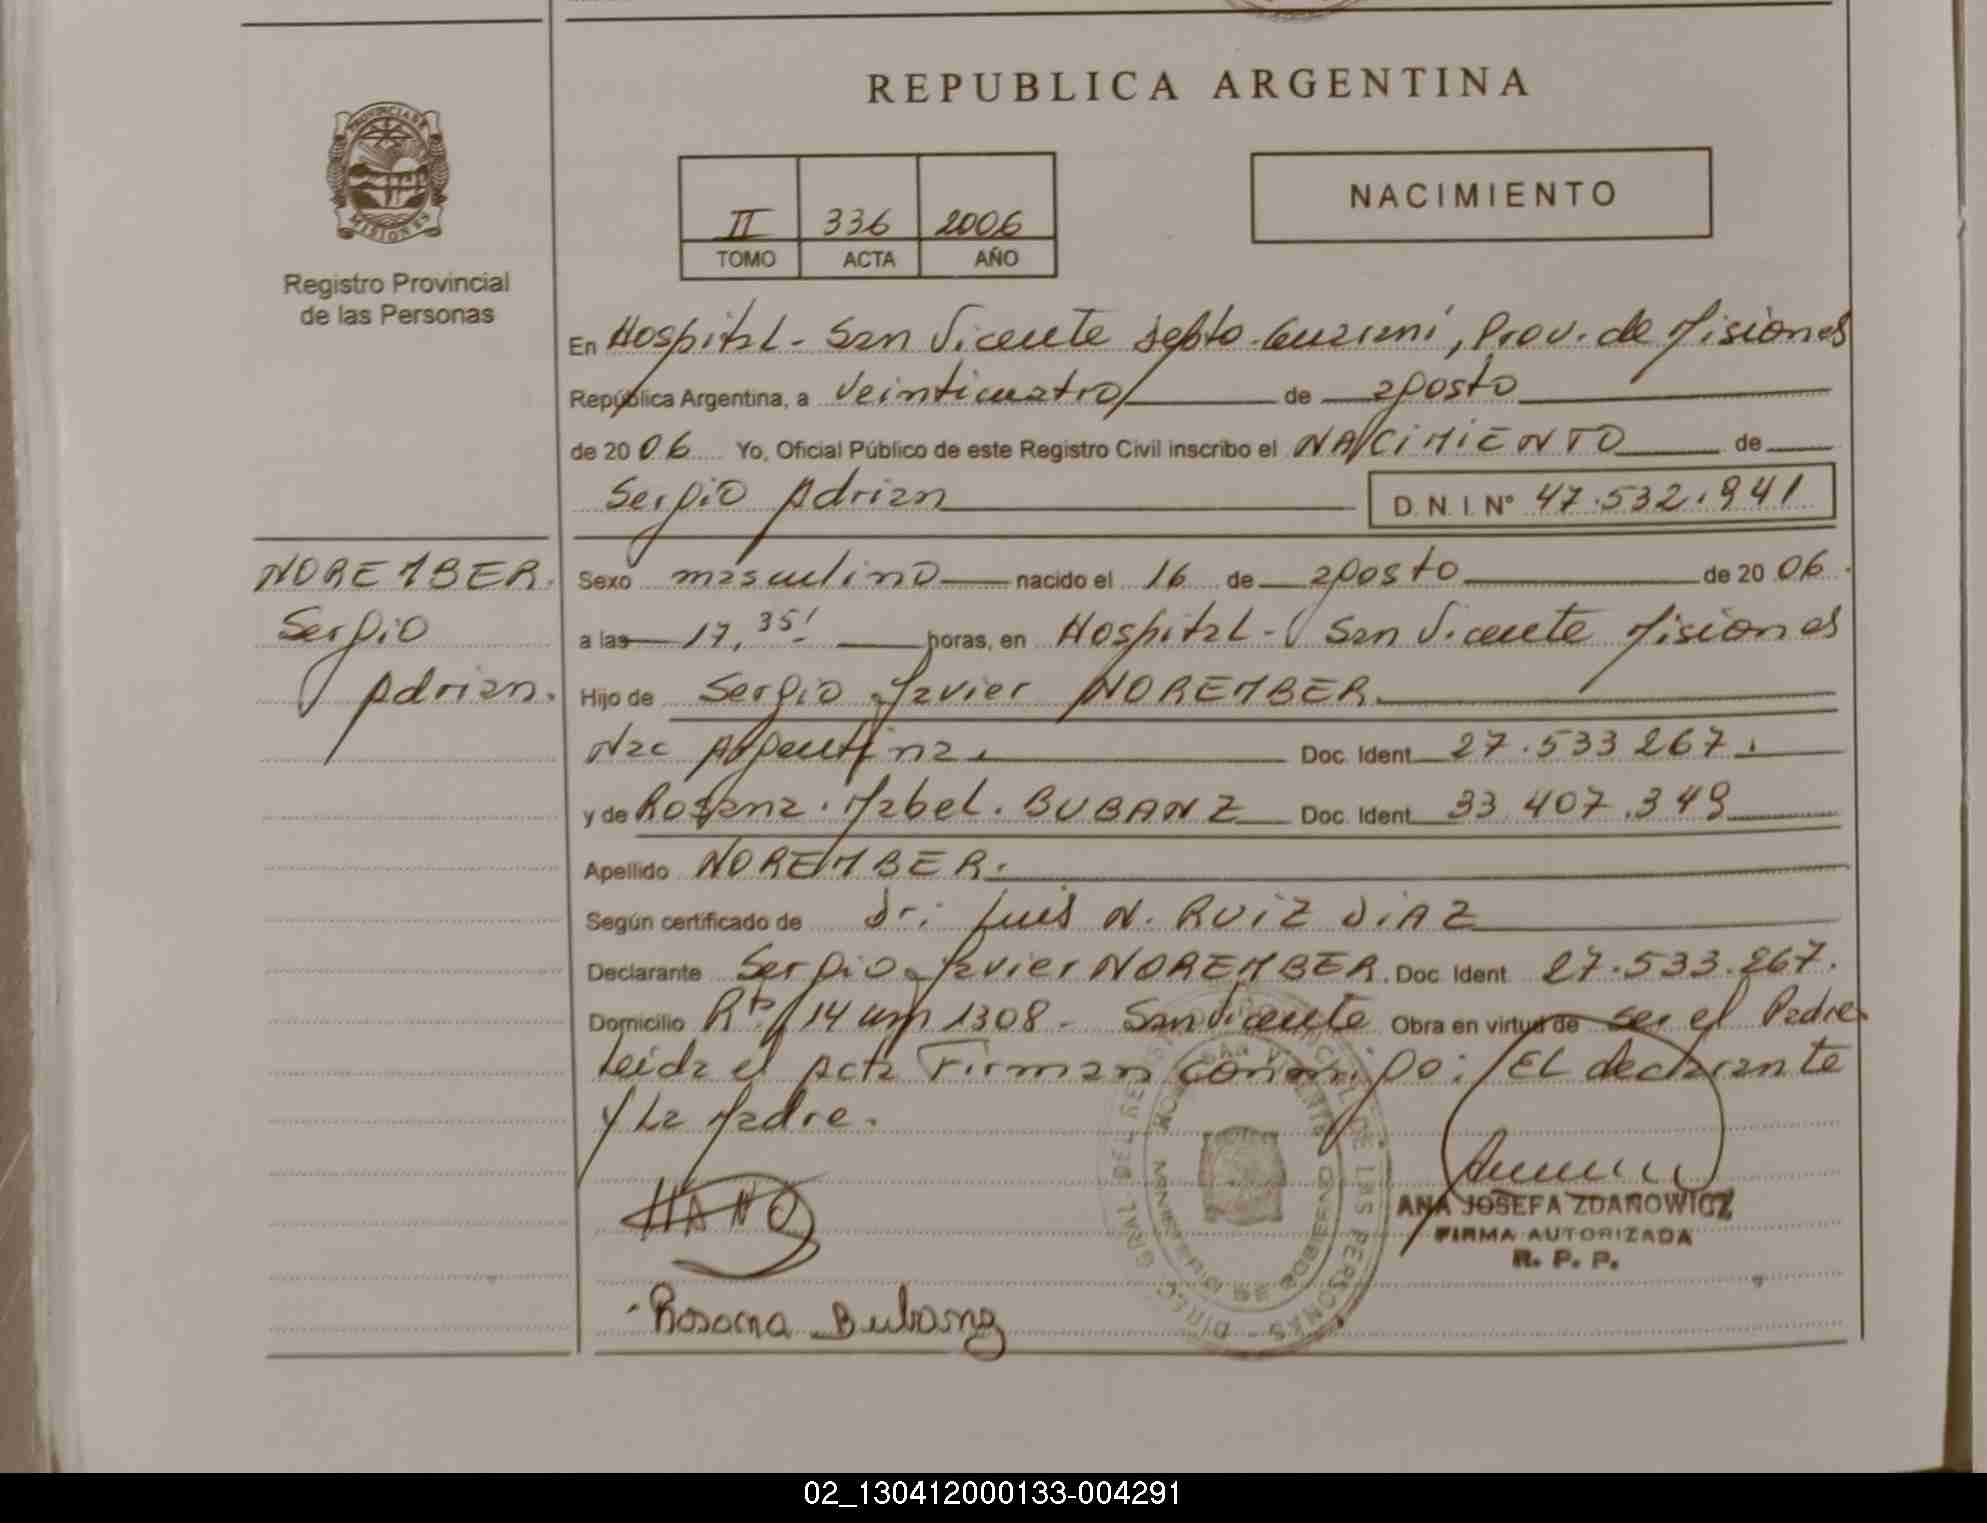 REPUBLICA ARGENTINA
PROVINCIA DE
MISIONES
Registro Provincial
de las Personas
II 336 2006
TOMO ACTA AÑO
NACIMIENTO
En Hospital - San Vicente Depto. Guarani, Prov. de Misiones
República Argentina, a veinticuatro de agosto
de 20 06 Yo, Oficial Público de este Registro Civil inscribo el NACIMIENTO de
Sergio Adrian D. N. I. Nº 47.532.941
NOREMBER.
Sergio
Adrian.
Sexo masculino nacido el 16 de agosto de 20 06.
a las 17,35' horas, en Hospital - San Vicente Misiones
Hijo de Sergio Javier NOREMBER.
Nac Argentina. Doc. Ident. 27.533 267.
y de Rosana. Mabel. BUBANZ Doc. Ident. 33.407.349
Apellido NOREMBER.
Según certificado de Dr: Luis N. RUIZ DIAZ
Declarante Sergio Javier NOREMBER. Doc. Ident. 27.533.267.
Domicilio Rta 14 km 1308 - San Vicente Obra en virtud de ser el Padre
Leida el Acta Firman conmigo: EL declarante
y La Madre.
ANA JOSEFA ZDANOWICZ
FIRMA AUTORIZADA
R. P. P.
Rosana Bubanz
02_130412000133-004291